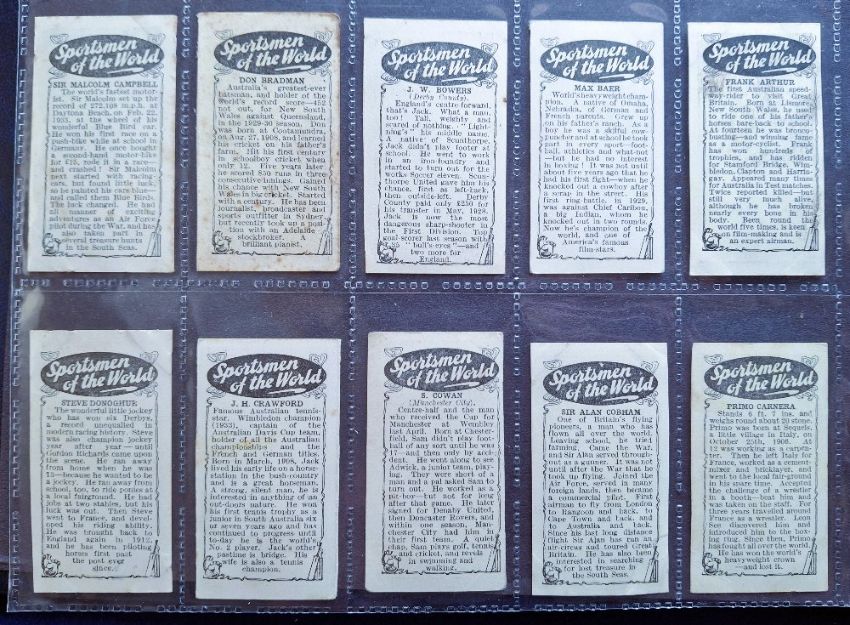 Sportsmen
of the World
SIR MALCOLM CAMPBELL
The world's fastest motor-
ist. Sir Malcolm set up the
record of 272.108 m.p.h. at
Daytona Beach, on Feb. 22,
1933, at the wheel of his
wonderful Blue Bird car.
He won his first race on a
push-bike while at school in
Germany. He once bought
a second-hand motor-bike
for £15, rode it in a race—
and crashed! Sir Malcolm
next started with racing-
cars, but found little luck,
so he painted his care blue—
and called them Blue Birds.
The luck changed. He had
all manner of exciting
adventures as an Air Force
pilot during the War, and has
also taken part in
several treasure hunts
in the South Seas.
Sportsmen
of the World
DON BRADMAN
Australia's greatest-ever
batsman, and holder of the
World's record score—452
not out, for New South
Wales against Queensland,
in the 1929-30 season. Don
was born at Cootamundra
on Aug. 27, 1908, and learned
his cricket on his father's
farm. Hit his first century
in schoolboy cricket when
only 12. Five years later
he scored 850 runs in three
consecutive innings. Gained
his chance with New South
Wales in big cricket. Started
with a century. He has been
journalist, broadcaster and
sports outfitter in Sydney,
but recently took up a posi-
tion with an Adelaide
stockbroker. A
brilliant pianist.
Sportsmen
of the World
J. W. BOWERS
(Derby County).
England's centre-forward,
that's Jack. What a man,
too! Tall, weighty and
scared of nothing. "Light-
ning's" his middle name.
A native of Scunthorpe,
Jack didn't play footer at
school. He went to work
in an iron-foundry and
started to turn out for the
works Soccer eleven. Scun-
thorpe United gave him his
chance, first as left-back,
then outside-left. Derby
County paid only £250 for
his transfer in May, 1928.
Jack is now the most
dangerous sharp-shooter in
the First Division. Top
goal-scorer last season with
"bull's eyes"—and
two more for
England.
Sportsmen
of the World
MAX BAER
World's heavyweight cham-
pion. A native of Omaha,
Nebraska, of German and
French parents. Grew up
on his father's ranch. As a
boy he was a skilful cow-
puncher and at school he took
part in every sport—foot-
ball, athletics and what-not
—but he had no interest
in boxing! It was not until
about five years ago that he
had his first fight—when he
knocked out a cowboy after
a scrap in the street. His
first ring-battle, in 1929,
was against Chief Caribou,
a big Indian, whom he
knocked out in two rounds.
Now he's champion of the
world, and one of
America's famous
film-stars.
Sportsmen
of the World
FRANK ARTHUR
The first Australian speed-
way-rider to visit Great
Britain. Born at Lismore,
New South Wales, he used
to ride one of his father's
horses bare-back to school.
At fourteen he was bronco-
busting—and winning fame
as a motor-cyclist. Frank
has won hundreds of
trophies, and has ridden
for Stamford Bridge, Wim-
bledon, Clapton and Harrin-
gay. Appeared many times
for Australia in Test matches.
Twice reported killed—but
still very much alive,
although he has broken
nearly every bone in his
body. Been round the
world five times, is keen
on film-making and is
an expert airman.
Sportsmen
of the World
STEVE DONOGHUE
The wonderful little jockey
who has won six Derbys,
a record unequalled in
modern racing history. Steve
was also champion jockey
year after year—until
Gordon Richards came upon
the scene. He ran away
from home when he was
11—because he wanted to be
a jockey. He ran away from
school, too, to ride ponies at
a local fairground. He had
jobs at two stables, but his
luck was out. Then Steve
went to France, and devel-
oped his riding ability.
He was brought back to
England again in 1912,
and he has been piloting
horses first past
the post ever
since.
Sportsmen
of the World
J. H. CRAWFORD
Famous Australian tennis-
star. Wimbledon champion
(1933), captain of the
Australian Davis Cup team,
holder of all the Australian
championships and the
French and German titles.
Born in March, 1908, Jack
lived his early life on a horse-
station in the bush-country
and is a great horseman.
A strong, silent man, he is
interested in anything of an
out-doors nature. He won
his first tennis trophy as a
junior in South Australia six
or seven years ago and has
continued to progress until
to-day he is the world's
No. 2 player. Jack's other
pastime is bridge. His
wife is also a tennis
champion.
Sportsmen
of the World
S. COWAN
(Manchester City).
Centre-half and the man
who received the Cup for
Manchester at Wembley
last April. Born at Chester-
field, Sam didn't play foot-
ball of any sort until he was
17—and then only by acci-
dent. He went along to see
Adwick, a junior team, play-
ing. They were short of a
man and a pal asked Sam to
turn out. He worked as a
pit-boy—but not for long
after that game. He later
signed for Denaby United,
then Doncaster Rovers, and
within one season, Man-
chester City had him in
their first team. A quiet
chap, Sam plays golf, tennis,
and cricket, and revels
in swimming and
walking.
Sportsmen
of the World
SIR ALAN COBHAM
One of Britain's flying
pioneers, a man who has
flown all over the world.
Leaving school, he tried
farming. Came the War,
and Sir Alan served through-
out as a gunner. It was not
until after the War that he
took up flying. Joined the
Air Force, served in many
foreign lands, then became
a commercial pilot. First
airman to fly from London
to Rangoon and back, to
Cape Town and back, and
to Australia and back.
Since his last long distance
flight Sir Alan has ran an
air circus and toured Great
Britain. He has also been
interested in searching
for lost treasure in
the South Seas.
Sportsmen
of the World
PRIMO CARNERA
Stands 6 ft. 7 ins. and
weighs round about 20 stone.
Primo was born at Sequels,
a little village in Italy, on
October 25th, 1906. At
12 was working as a carpen-
ter. Then he left Italy for
France, worked as a cement-
mixer and bricklayer, and
went to the local fair-ground
in his spare time. Accepted
the challenge of a wrestler
in a booth,—beat him and
was taken on the staff. For
three years travelled around
France as a wrestler. Leon
See discovered him and
introduced him to the box-
ing ring. Since then, Primo
has fought all over the world.
He has won the world's
heavyweight crown
—and lost it.